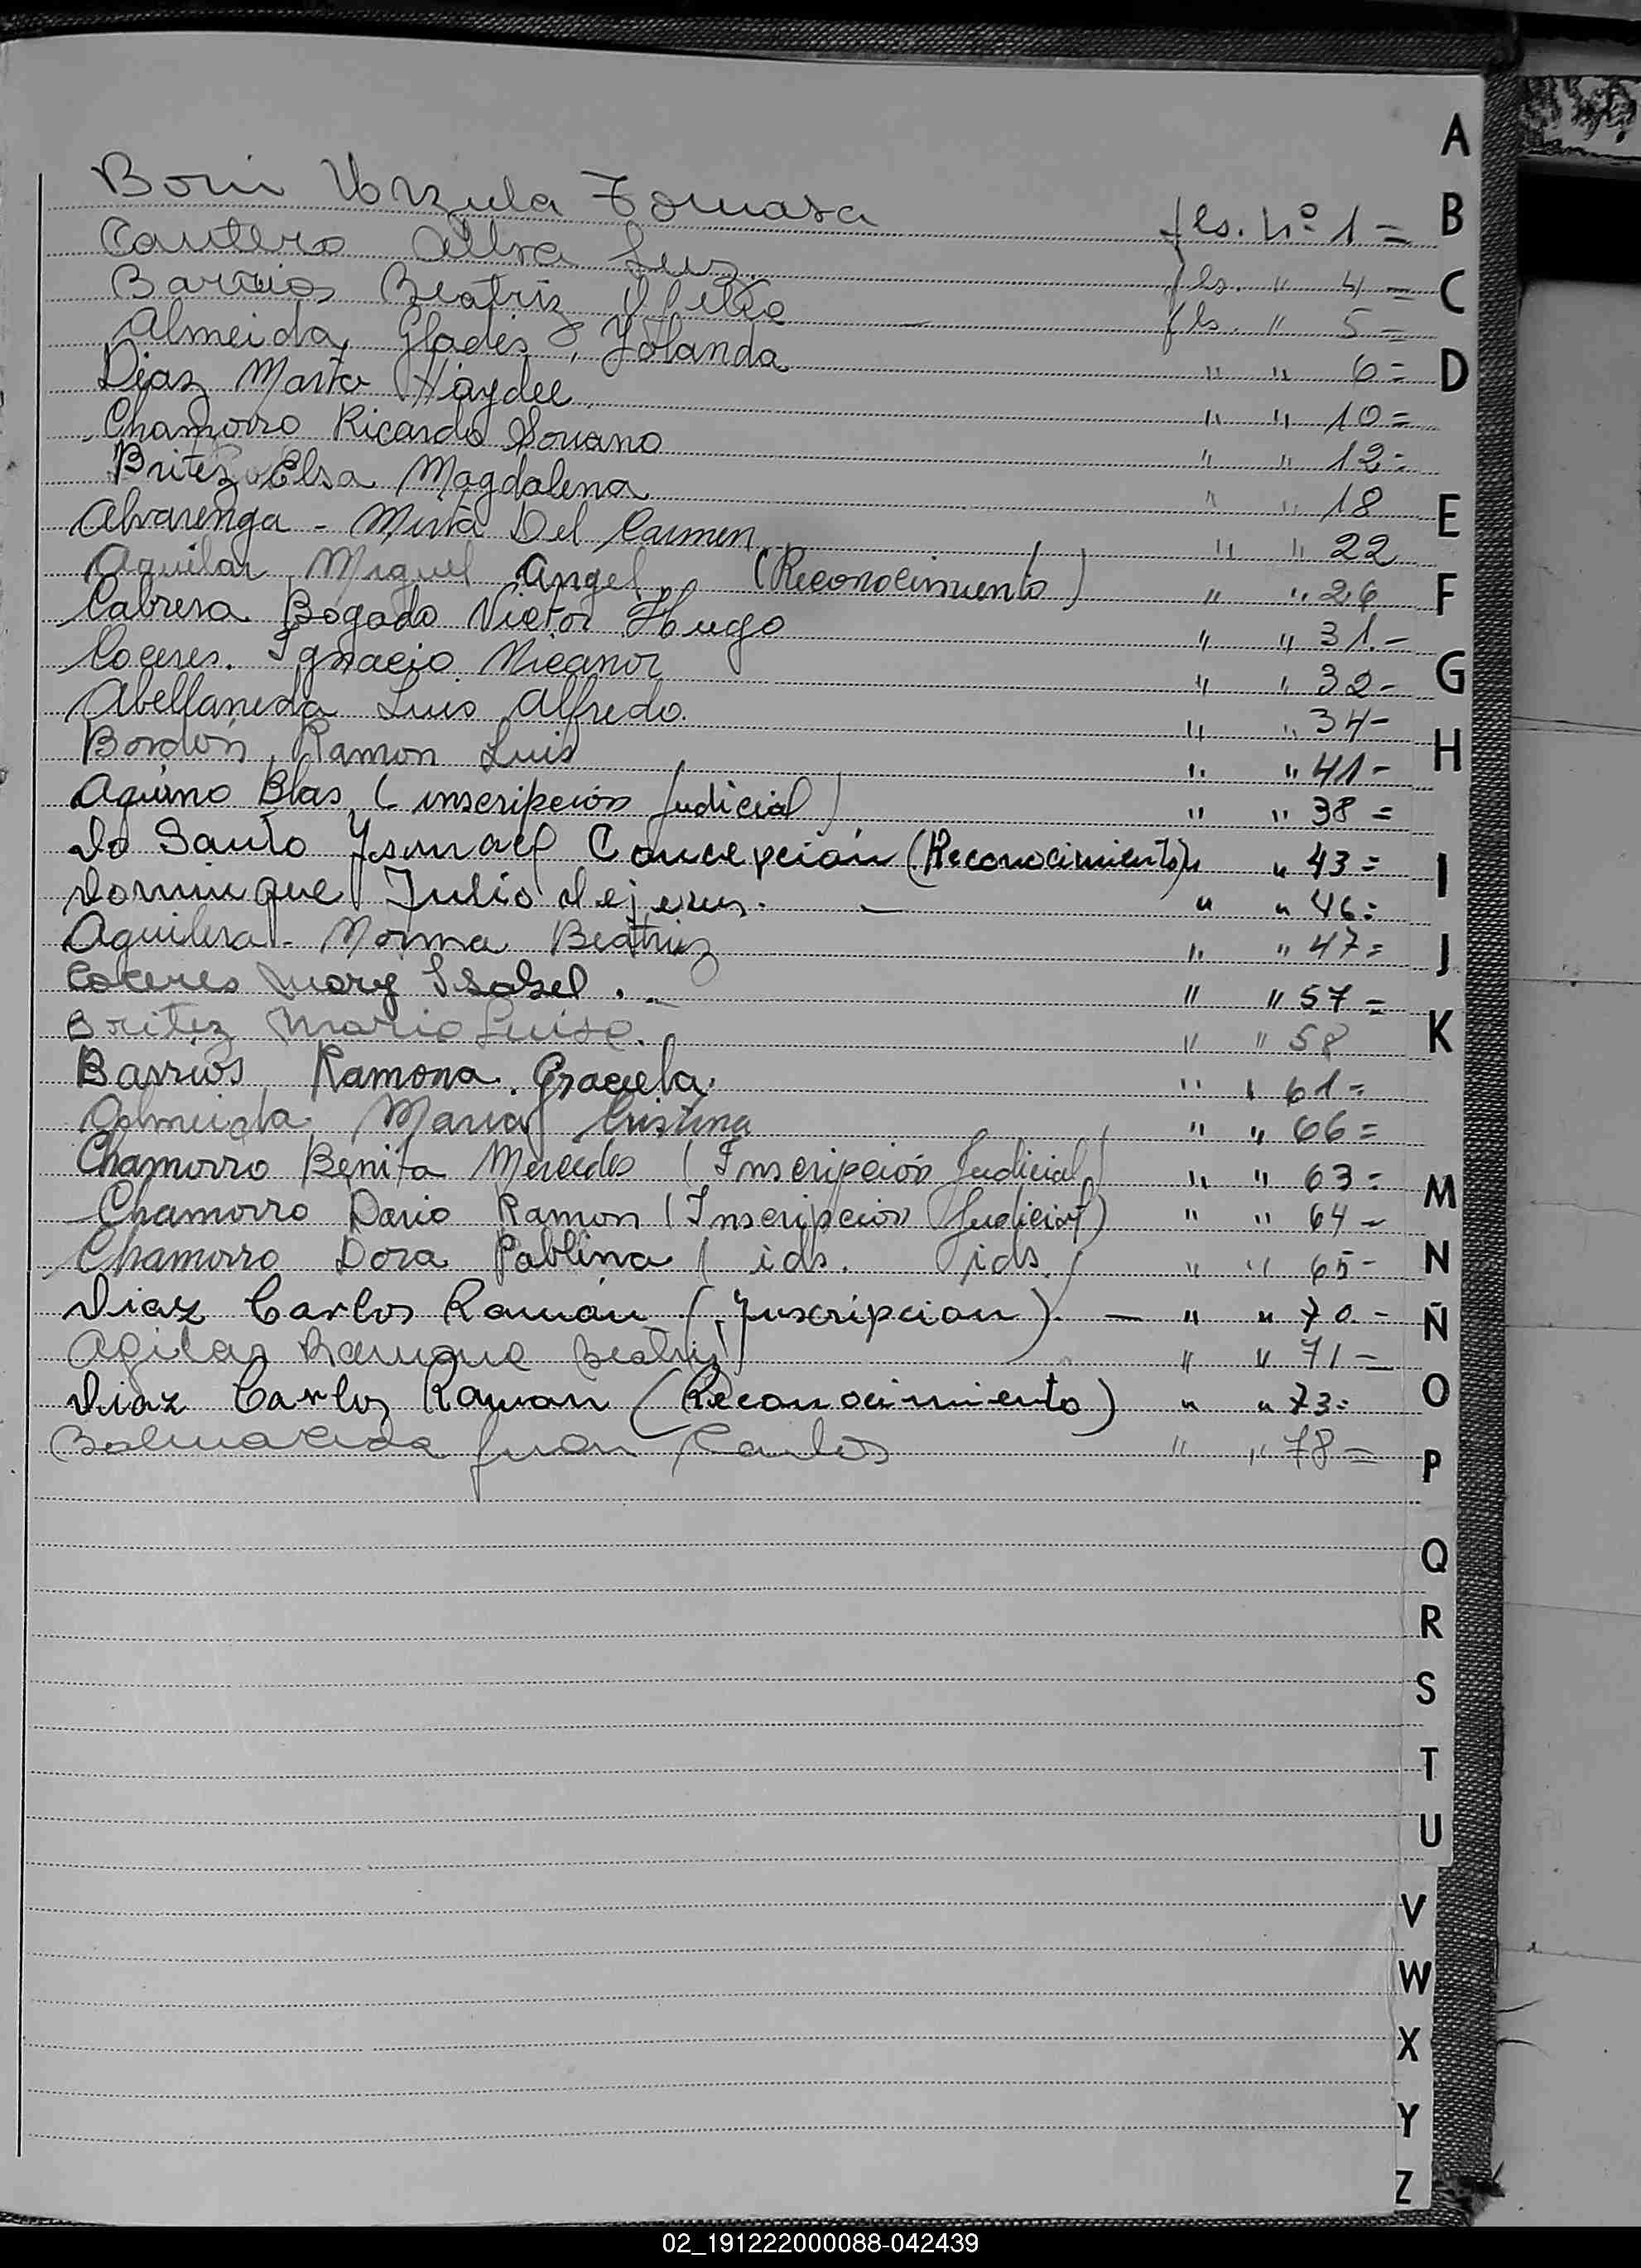 Borin Urzula Tomasa fls. Nº 1=
Cantero Alba Luz. fls. " 4=
Barrios Beatriz — fls. " 5=
Almeida, Glades, Yolanda " " 6=
Diaz Marta Haydee " " 10=
Chamorro Ricardo Soriano " " 12=
Britez Elsa Magdalena " " 18
Alvarenga - Mirta Del Carmen " " 22
Aguilar Miguel Angel. (Reconocimiento) " " 26
Cabrera Bogado Victor Hugo " " 31.-
Coceres. Ignacio Nicanor " " 32-
Abellaneda Luis Alfredo. " " 34-
Bordón, Ramon Luis " " 41-
Aquino Blas, (inscripción Judicial) " " 38=
Do Santo Ysmael Concepción (Reconocimiento) " " 43=
Dominque Julio dejesus. — " " 46=
Aguilera - Norma Beatriz " " 47=
Coceres Mary Isabel. - " " 57=
Britez Maria Luisa. " " 58
Barrios Ramona. Graciela. " " 61=
Almeida Maria Cristina " " 66=
Chamorro Benita Mercedes (Inscripción Judicial) " " 63=
Chamorro Dario Ramon (Inscripción Judicial) " " 64-
Chamorro Dora Pablina (ids. ids.) " " 65-
Diaz Carlos Ramón (Ynscripcion). — " " 70.-
Agilar Beatriz " " 71=
Diaz Carlos Ramon (Reconocimiento) " " 73=
Juan Carlos " " 78=
A
B
C
D
E
F
G
H
I
J
K
M
N
Ñ
O
P
Q
R
S
T
U
V
W
X
Y
Z
02_191222000088-042439